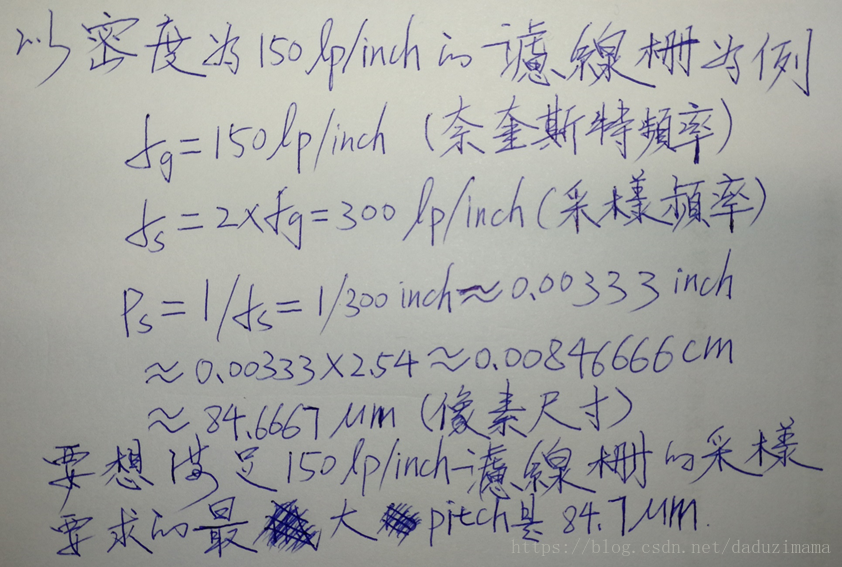 以密度为150lp/inch的濾線栅为例
fg=150lp/inch (奈奎斯特頻率)
fs=2×fg=300 lp/inch(采樣頻率)
Ps=1/fs=1/300 inch≈0.00333 inch
≈0.00333×2.54≈0.00846666cm
≈84.6667 μm (像素尺寸)
要想满足150lp/inch濾線栅的采樣
要求的最大pitch是84.7μm.
https://blog.csdn.net/daduzimama